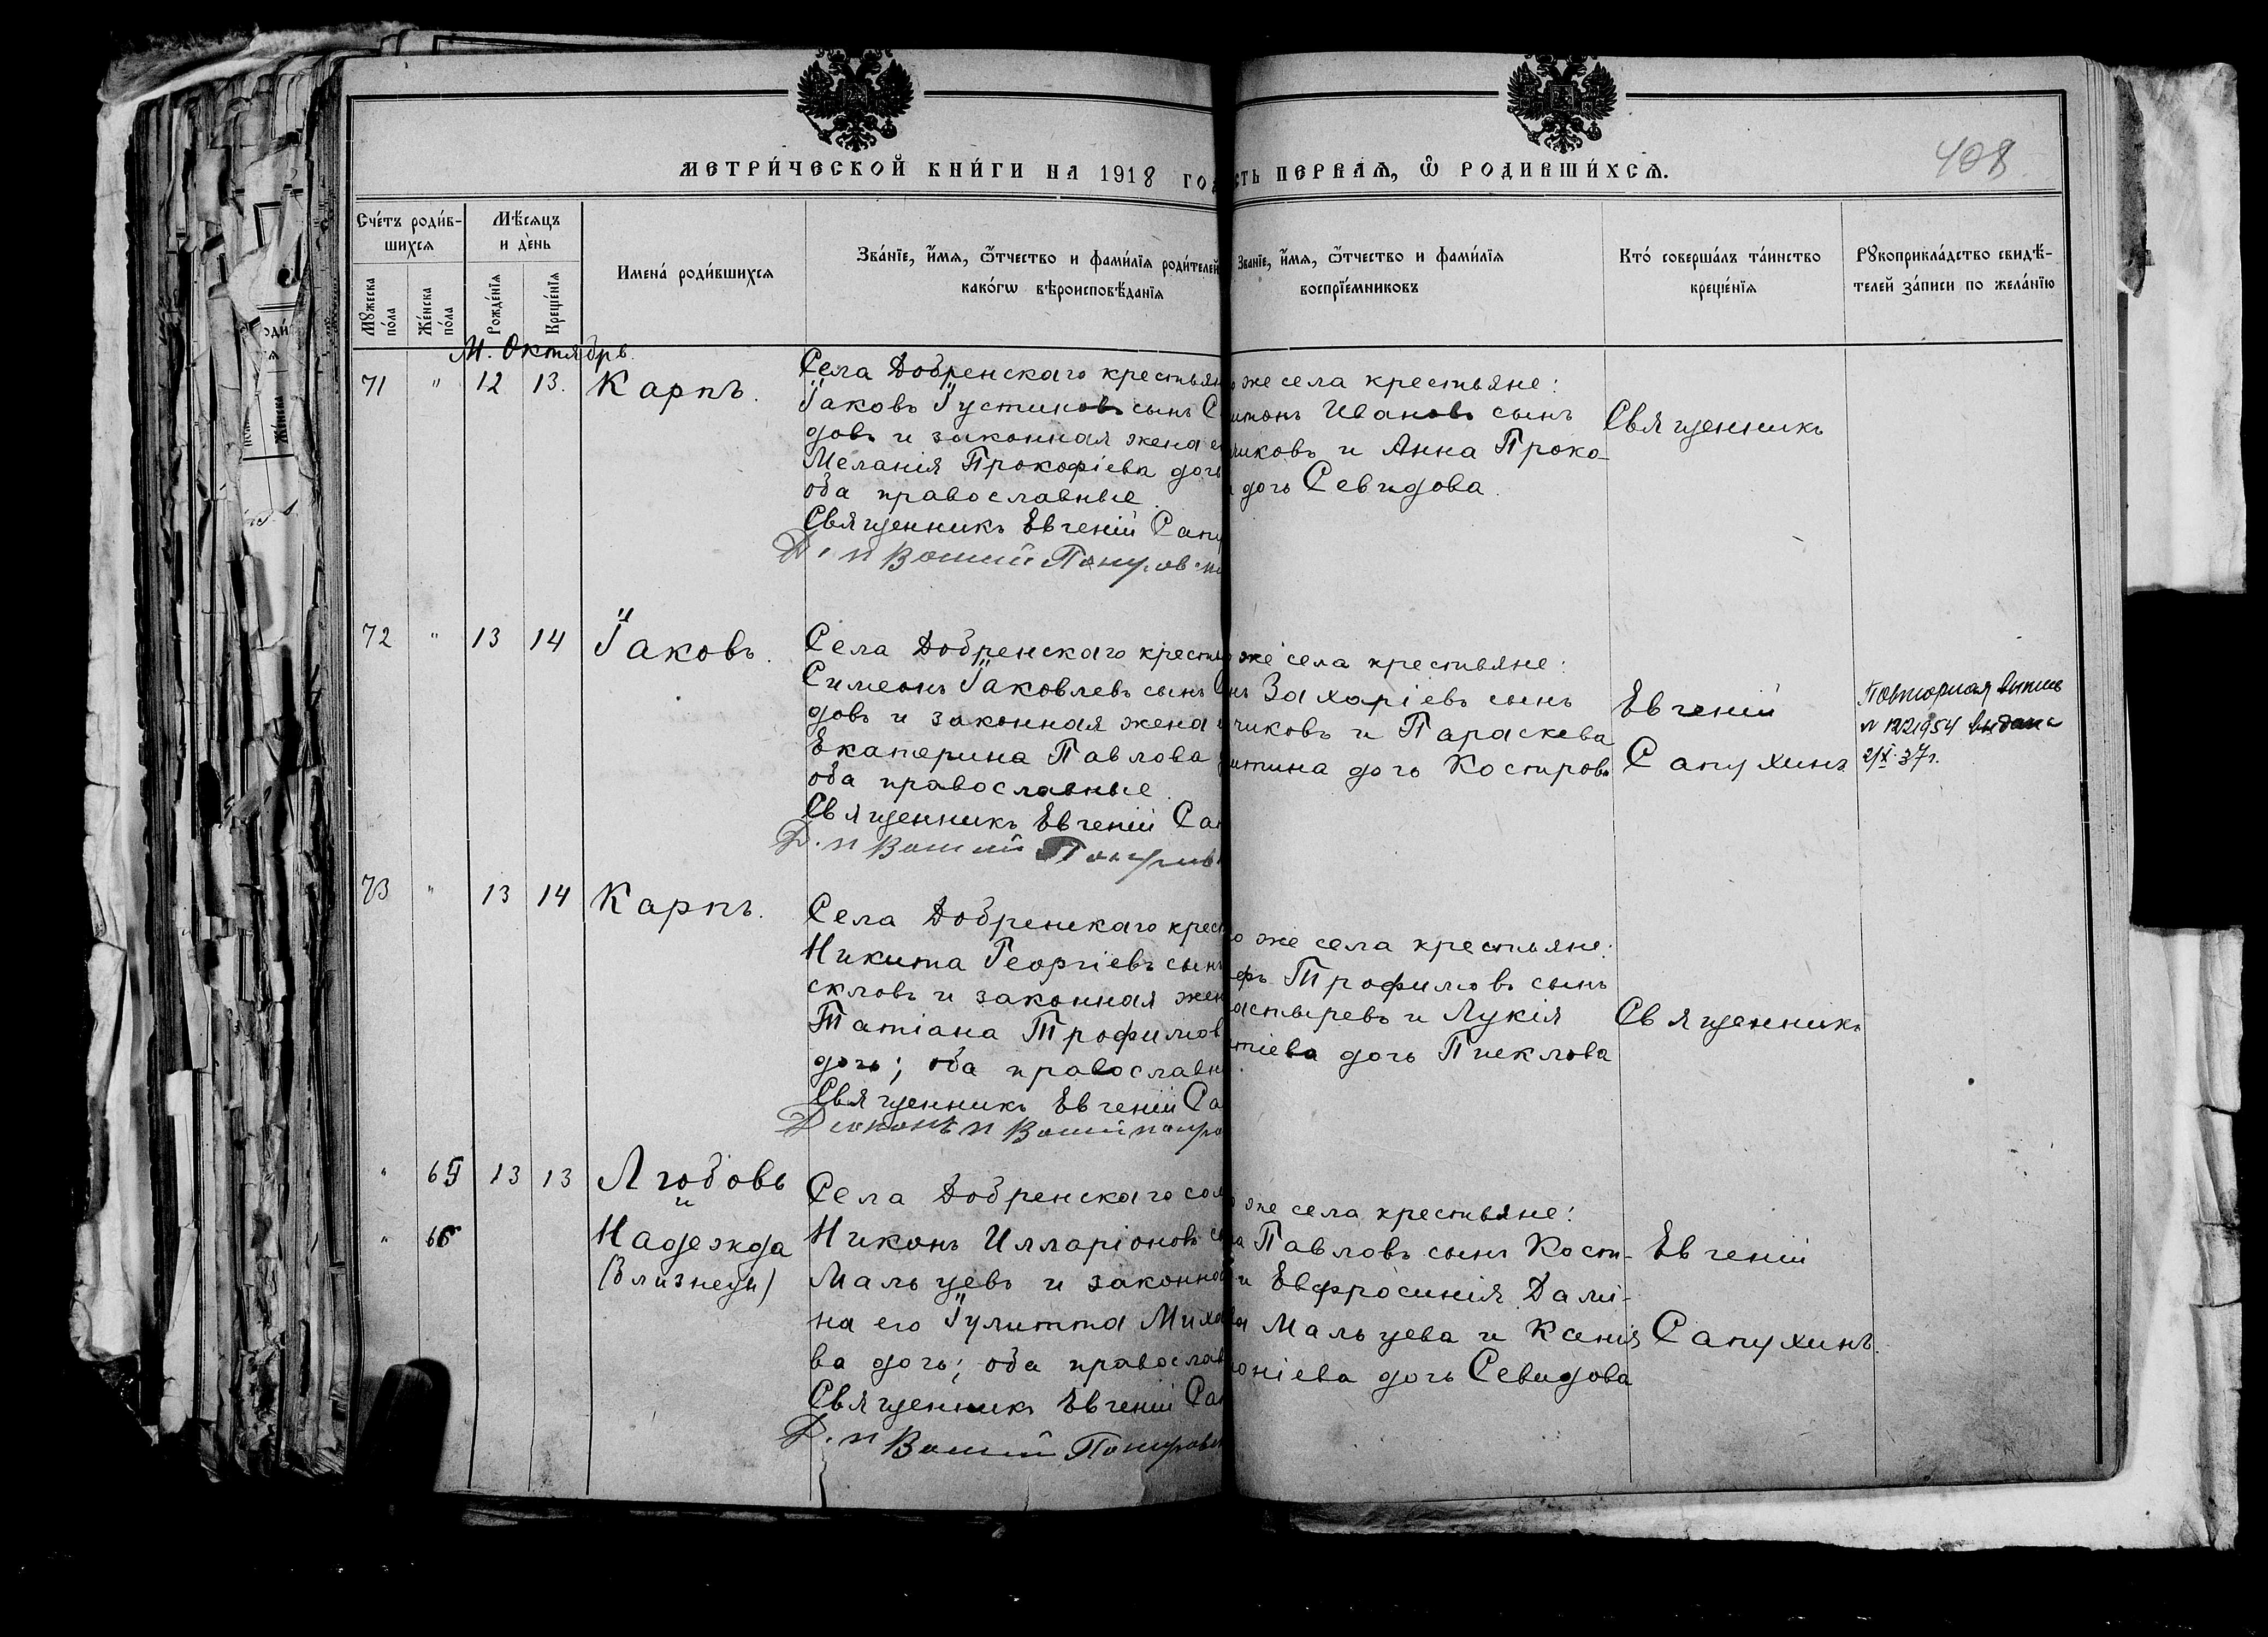 МЕТРИ́ЧЕСКОЙ КНИ́ГИ НА 1918 ГО
СТЬ ПЕРВАѦ, Ѡ҆ РОДИВШИ́ХСѦ.
408
Сче́тъ роди́в-
шихсѧ
Мꙋжеска
по́ла
Же́нска
по́ла
Мѣ́сѧцъ
и де́нь
Рожде́нїѧ
Креще́нїѧ
Имена́ роди́вшихсѧ
Зва́нїе, и҆́мѧ, ѿтчество и фами́лїѧ роди́телей
како́гѡ вѣроисповѣ́данїѧ
Зва́нїе, и҆́мѧ, ѿтчество и фами́лїѧ
воспрїе́мниковъ
Кто́ соверша́лъ та́инство
креще́нїѧ
Рꙋкоприкла́дство свидѣ́-
телей за́писи по жела́нїю
М. Октябрь.
71 " 12 13. Карпъ.
Села Добренскаго крестьян
Іаковъ Іустиновъ сынъ С
довъ и законная жена е
Меланія Прокофіева дочь
оба православные.
Священникъ Евгеній Сапу
о же села крестьяне:
итонъ Ивановъ сынъ
чиковъ и Анна Проко-
дочь Севидова.
Священникъ
72 " 13 14 Іаковъ.
Села Добренскаго крестья
Симеонъ Іаковлевъ сынъ С
довъ и законная жена е
Екатерина Павлова
оба православные.
Священникъ Евгеній Сап
же села крестьяне:
нъ Захаріевъ сынъ
чиковъ и Параскева
итина дочь Костирова
Евгеній
Сапухинъ
Повторная выпись
№ 1221954 выдана
2/X-37г.
73 " 13 14 Карпъ.
Села Добренскаго крест
Никита Георгіевъ сынъ
скловъ и законная жен
Татіана Трофимов
дочь; оба православн
Священникъ Евгеній Са
Діаконъ
о же села крестьяне:
ефъ Трофимовъ сынъ
астыревъ и Лукія
тіева дочь Писклова
Священникъ
" 65 13 13 Любовь
и
" 66 Надежда
(близнецы)
Села Добренскаго сол
Никонъ Илларіоновъ сы
Мальцевъ и законна
на его Іулитта Миха
ва дочь; оба православ
Священникъ Евгеній Сап
же села крестьяне:
а Павловъ сынъ Кости-
и Евфросинія Дамі-
ва Мальцева и Ксенія
оніева дочь Севидова
Евгеній
Сапухинъ.